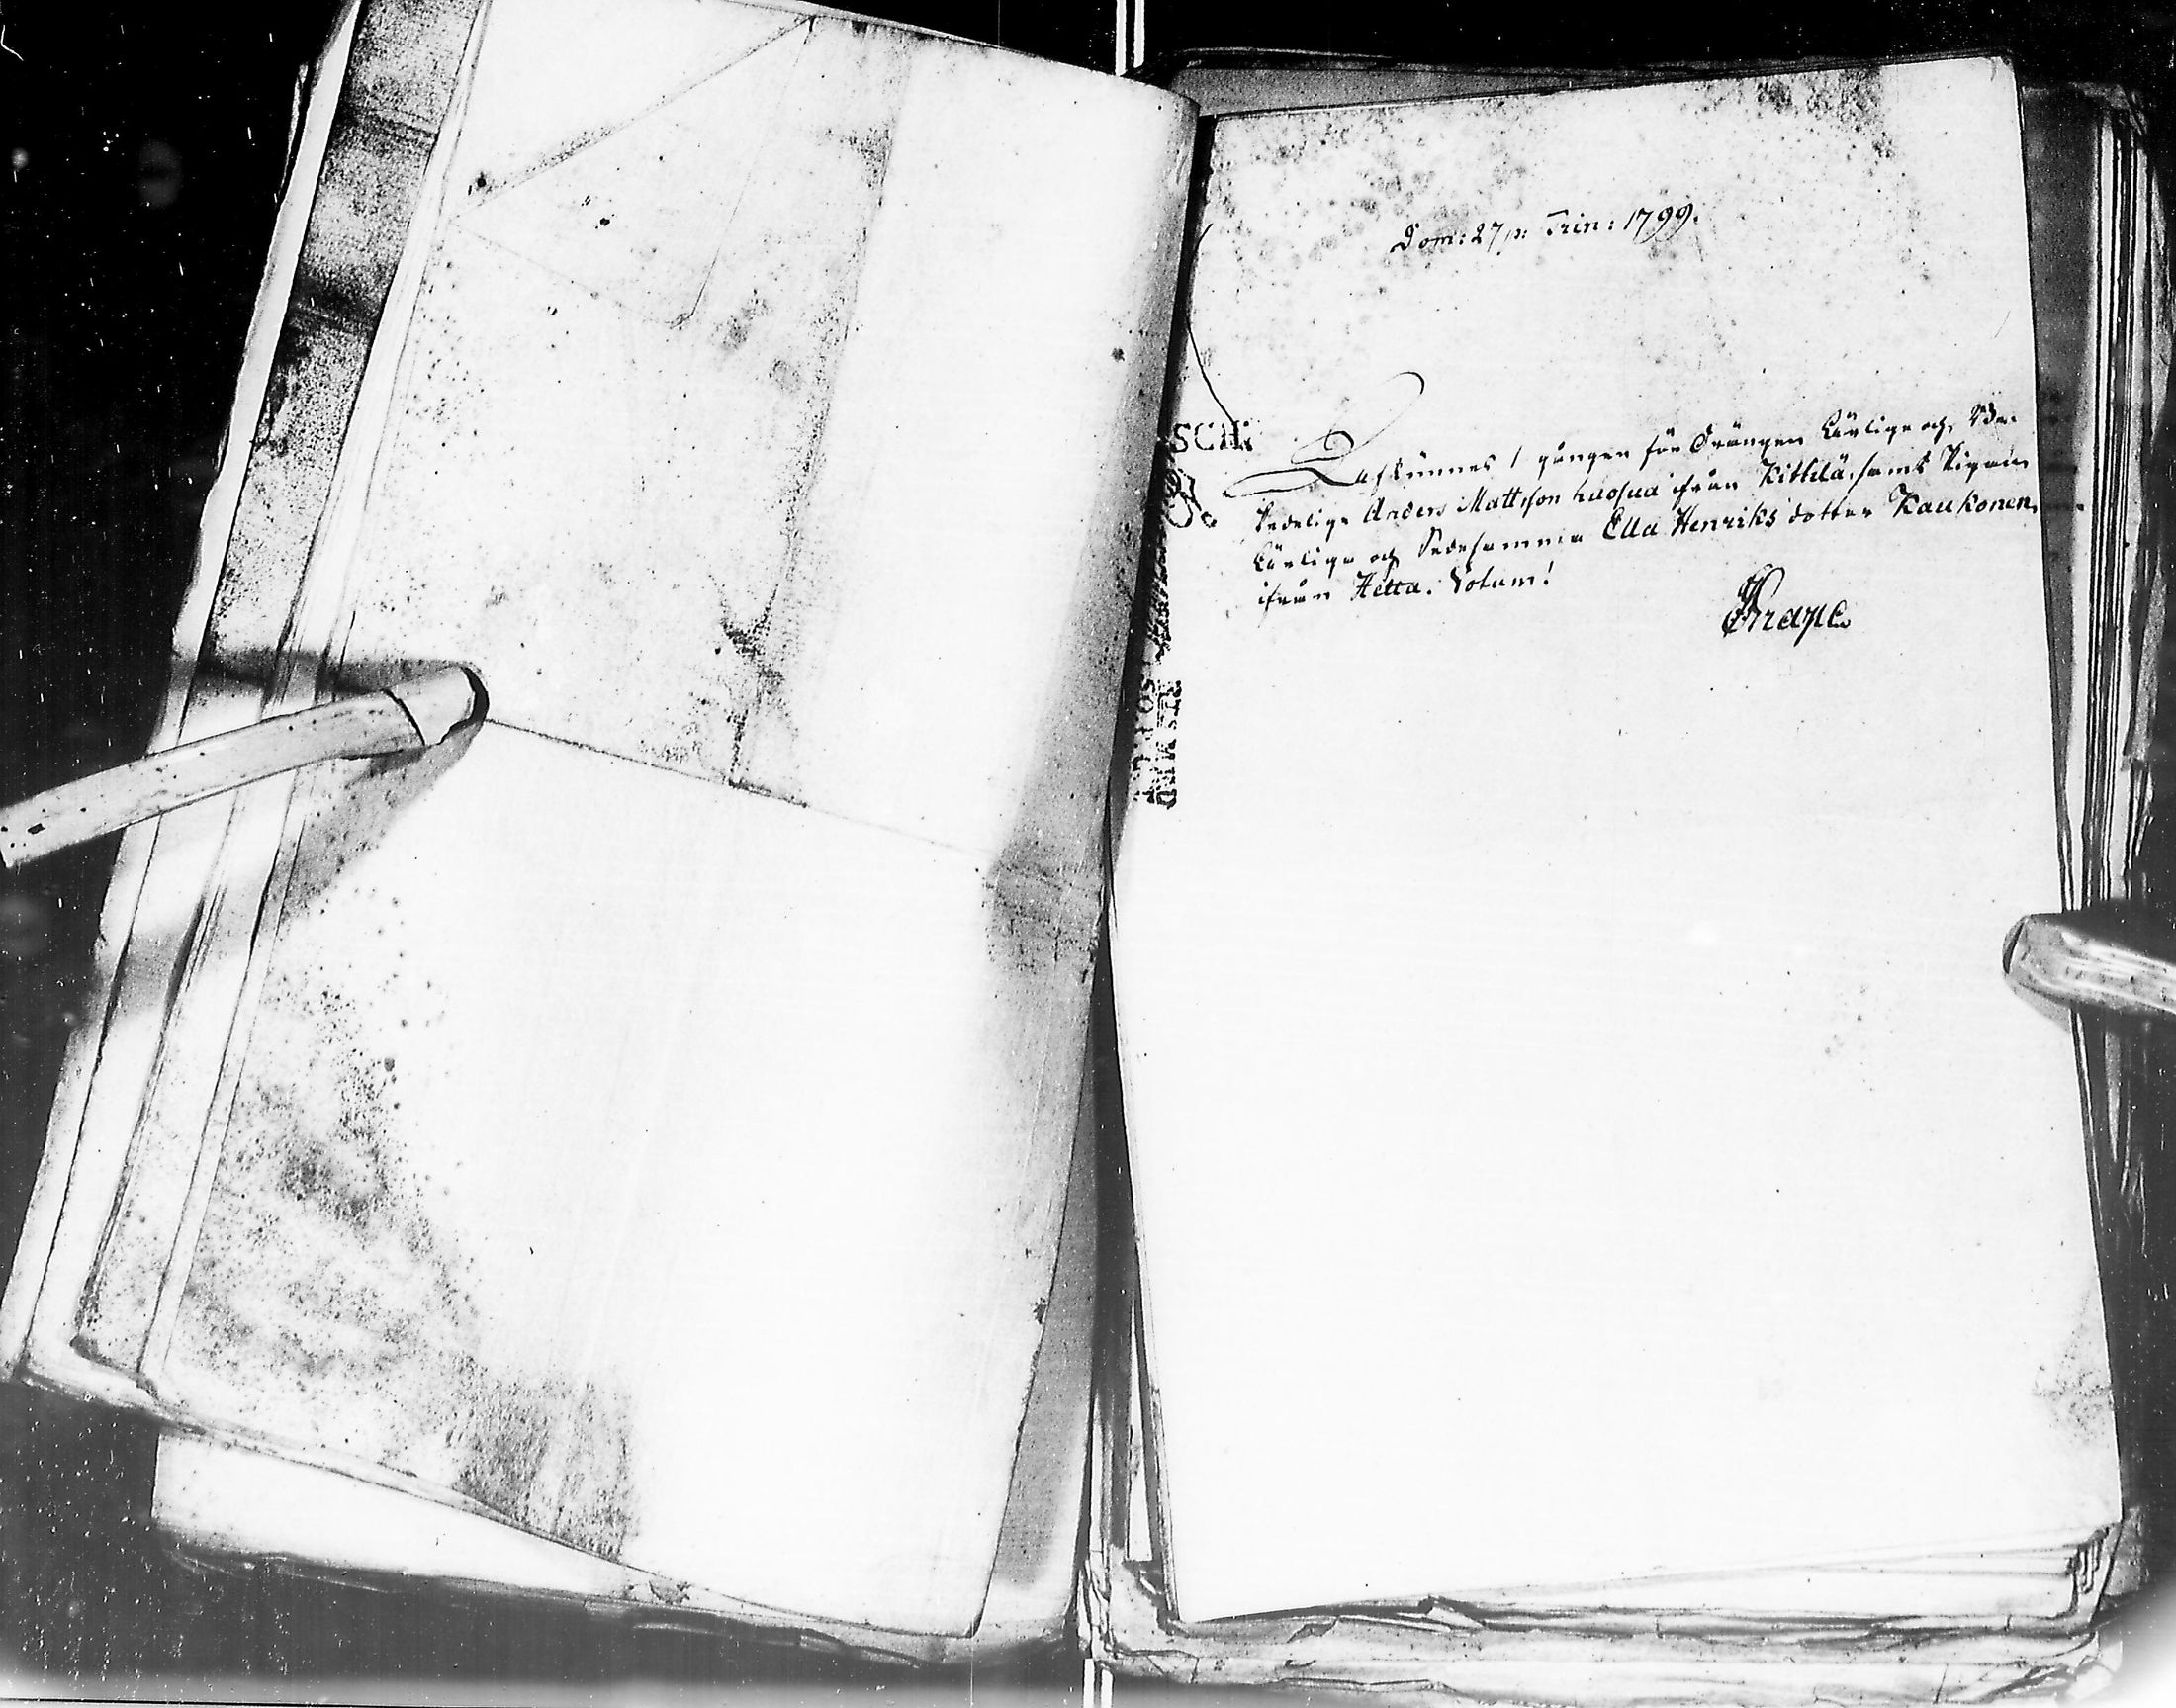 Dom: 27 p: Trin: 1799.
SCHi
Lafkunnes 1 gången för Drängen Ärlige och Be-
skedelige Anders Mattsson ifrån Kittilä, samt Pigan
Ärliga och Sedesamma Ella Henriks dotter Kaukonen,
ifrån Hetta. Votum!